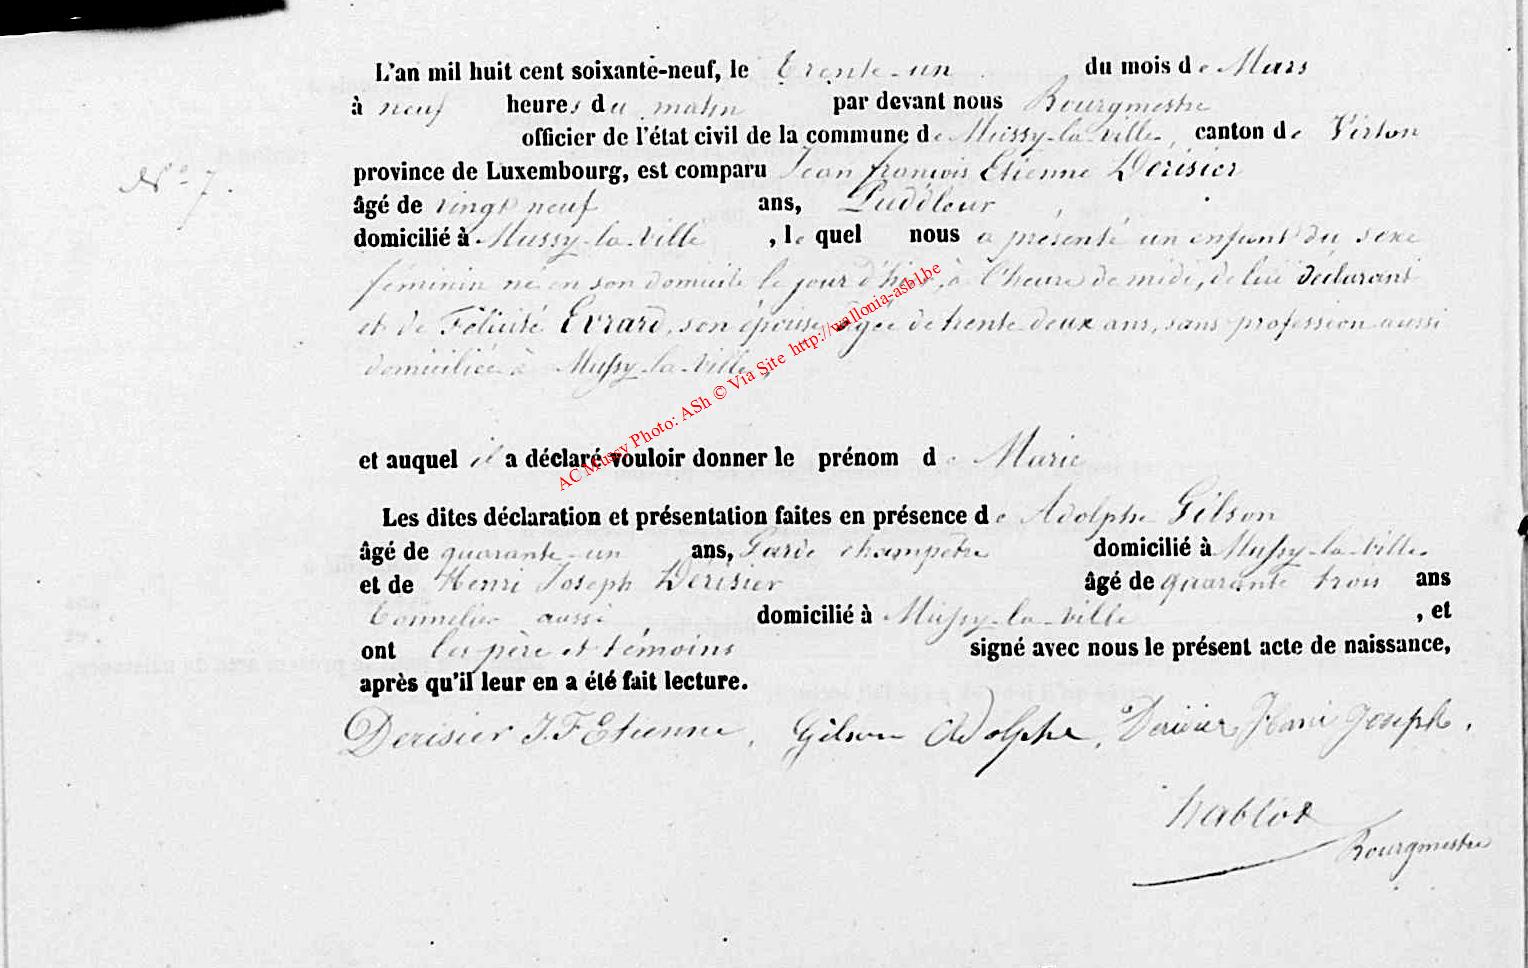 L'an mil huit cent soixante-neuf, le Trente-un du mois de Mars
à neuf heures du matin par devant nous Bourgmestre
officier de l'état civil de la commune de Mussy-la-ville, canton de Virton
N° 7.
province de Luxembourg, est comparu Jean françois Etienne Derisier
âgé de vingt neuf ans, Puddleur
domicilié à Mussy-la-Ville, lequel nous a présenté un enfant du sexe
féminin né en son domicile le jour d'hier, à l'heure de midi, de lui déclarant
et de Félicité Evrard, son épouse, âgée de trente deux ans, sans profession aussi
domiciliée à Mussy-la-Ville,
et auquel il a déclaré vouloir donner le prénom de Marie
Les dites déclaration et présentation faites en présence de Adolphe Gilson
âgé de quarante-un ans, Garde champêtre domicilié à Mussy-la-Ville
et de Henri Joseph Dérisier âgé de quarante trois ans
Tonnelier aussi domicilié à Mussy-la-ville, et
ont les père et témoins signé avec nous le présent acte de naissance,
après qu'il leur en a été fait lecture.
Derisier J. F Etienne. Gilson Adolphe. Derisier Henri Joseph.
habtot
Bourgmestre
AC Mussy Photo: ASh © Via Site http://wallonia-asbl.be